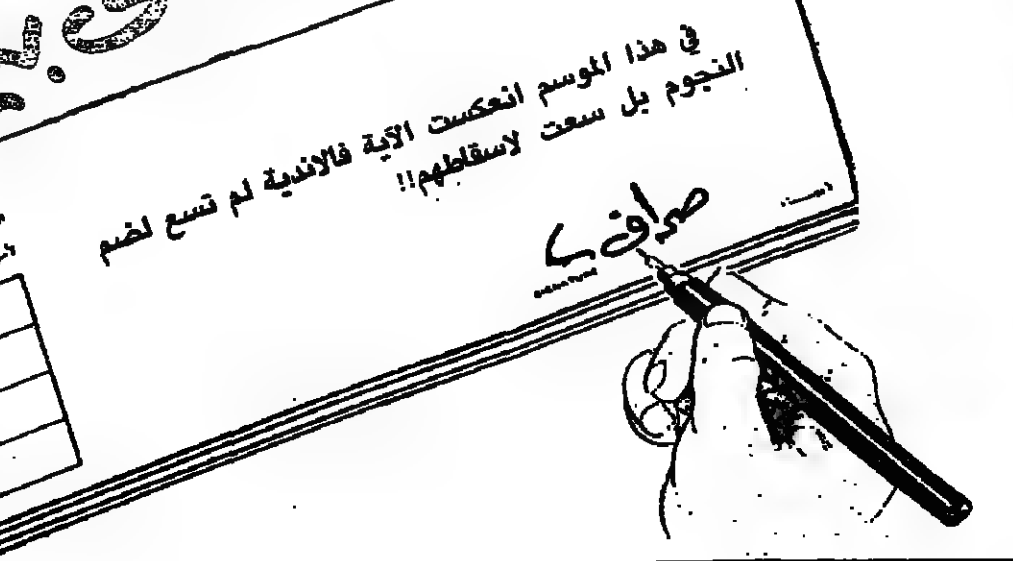 في هذا الموسم انعكست الآية فالاندية لم تسع لضم
النجوم بل سعت لاسقاطهم!!
SIGNATURE